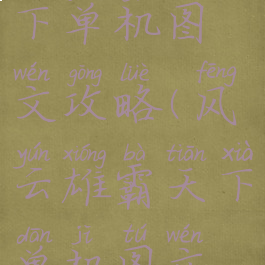 下单机图
wén gōng lüè fēng
文攻略(风
yún xióng bà tiān xià
云雄霸天下
dān jī tú wén
单机图文